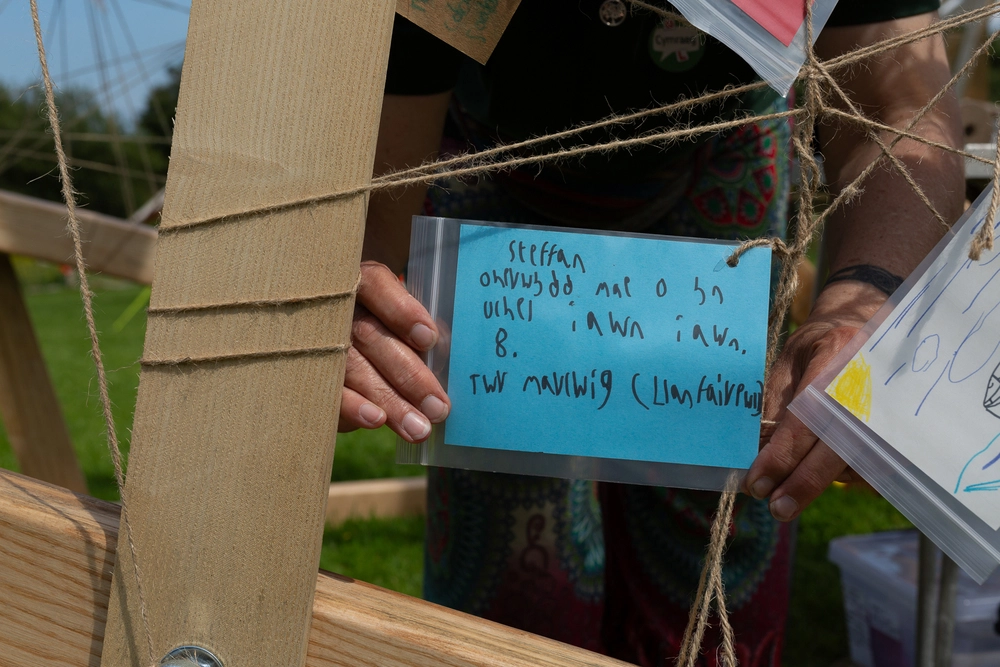 Cymraeg
Steffan
oherwydd mae o yn
uchel iawn iawn.
8.
Twr marcwis (Llanfairpwll